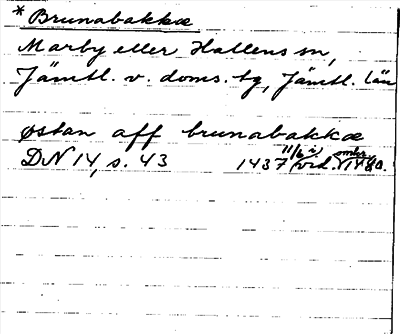 * Brunabakkæ
Marby eller Hallens sn,
Jämtl. v. doms. tg, Jämtl. län
østan aff brunabakkæ
DN 14, s. 43 1437 11/6 i vid. omkr 1480.